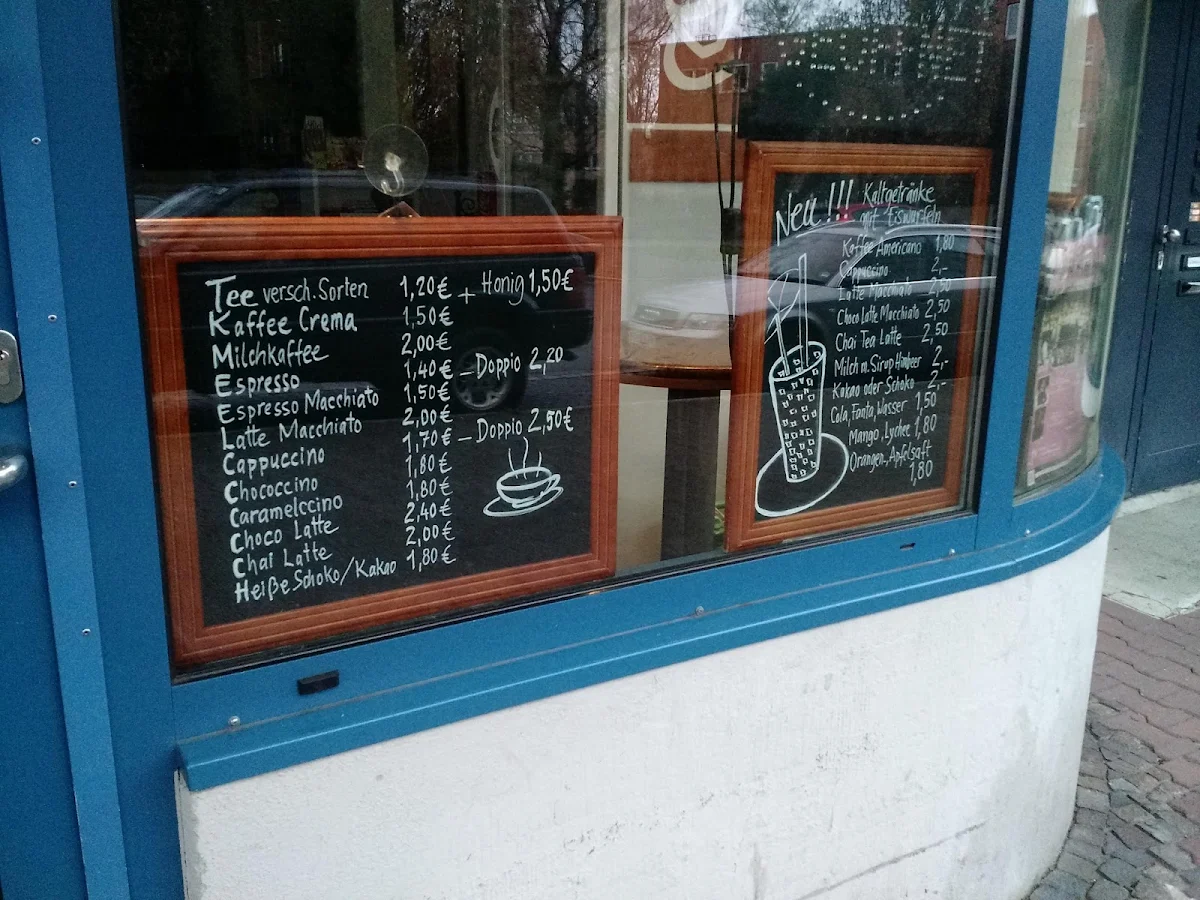 Tee versch. Sorten 1,20€ + Honig 1,50€
Kaffee Crema 1,50€
Milchkaffee 2,00€
Espresso 1,40€ – Doppio 2,20
Espresso Macchiato 1,50€
Latte Macchiato 2,00€
Cappuccino 1,70€ – Doppio 2,50€
Chococcino 1,80€
Caramelccino 1,80€
Choco Latte 2,40€
Chai Latte 2,00€
Heiße Schoko/Kakao 1,80€
Neu!!! Kaltgetränke
mit Eiswürfeln
Kaffee Americano 1,80
Cappuccino 2,-
Latte Macchiato 2,50
Choco Latte Macchiato 2,50
Chai Tea Latte 2,50
Milch m. Sirup Himbeer 2,-
Kakao oder Schoko 2,-
Cola, Fanta, Wasser 1,50
Mango, Lychee 1,80
Orangen-, Apfelsaft
1,80